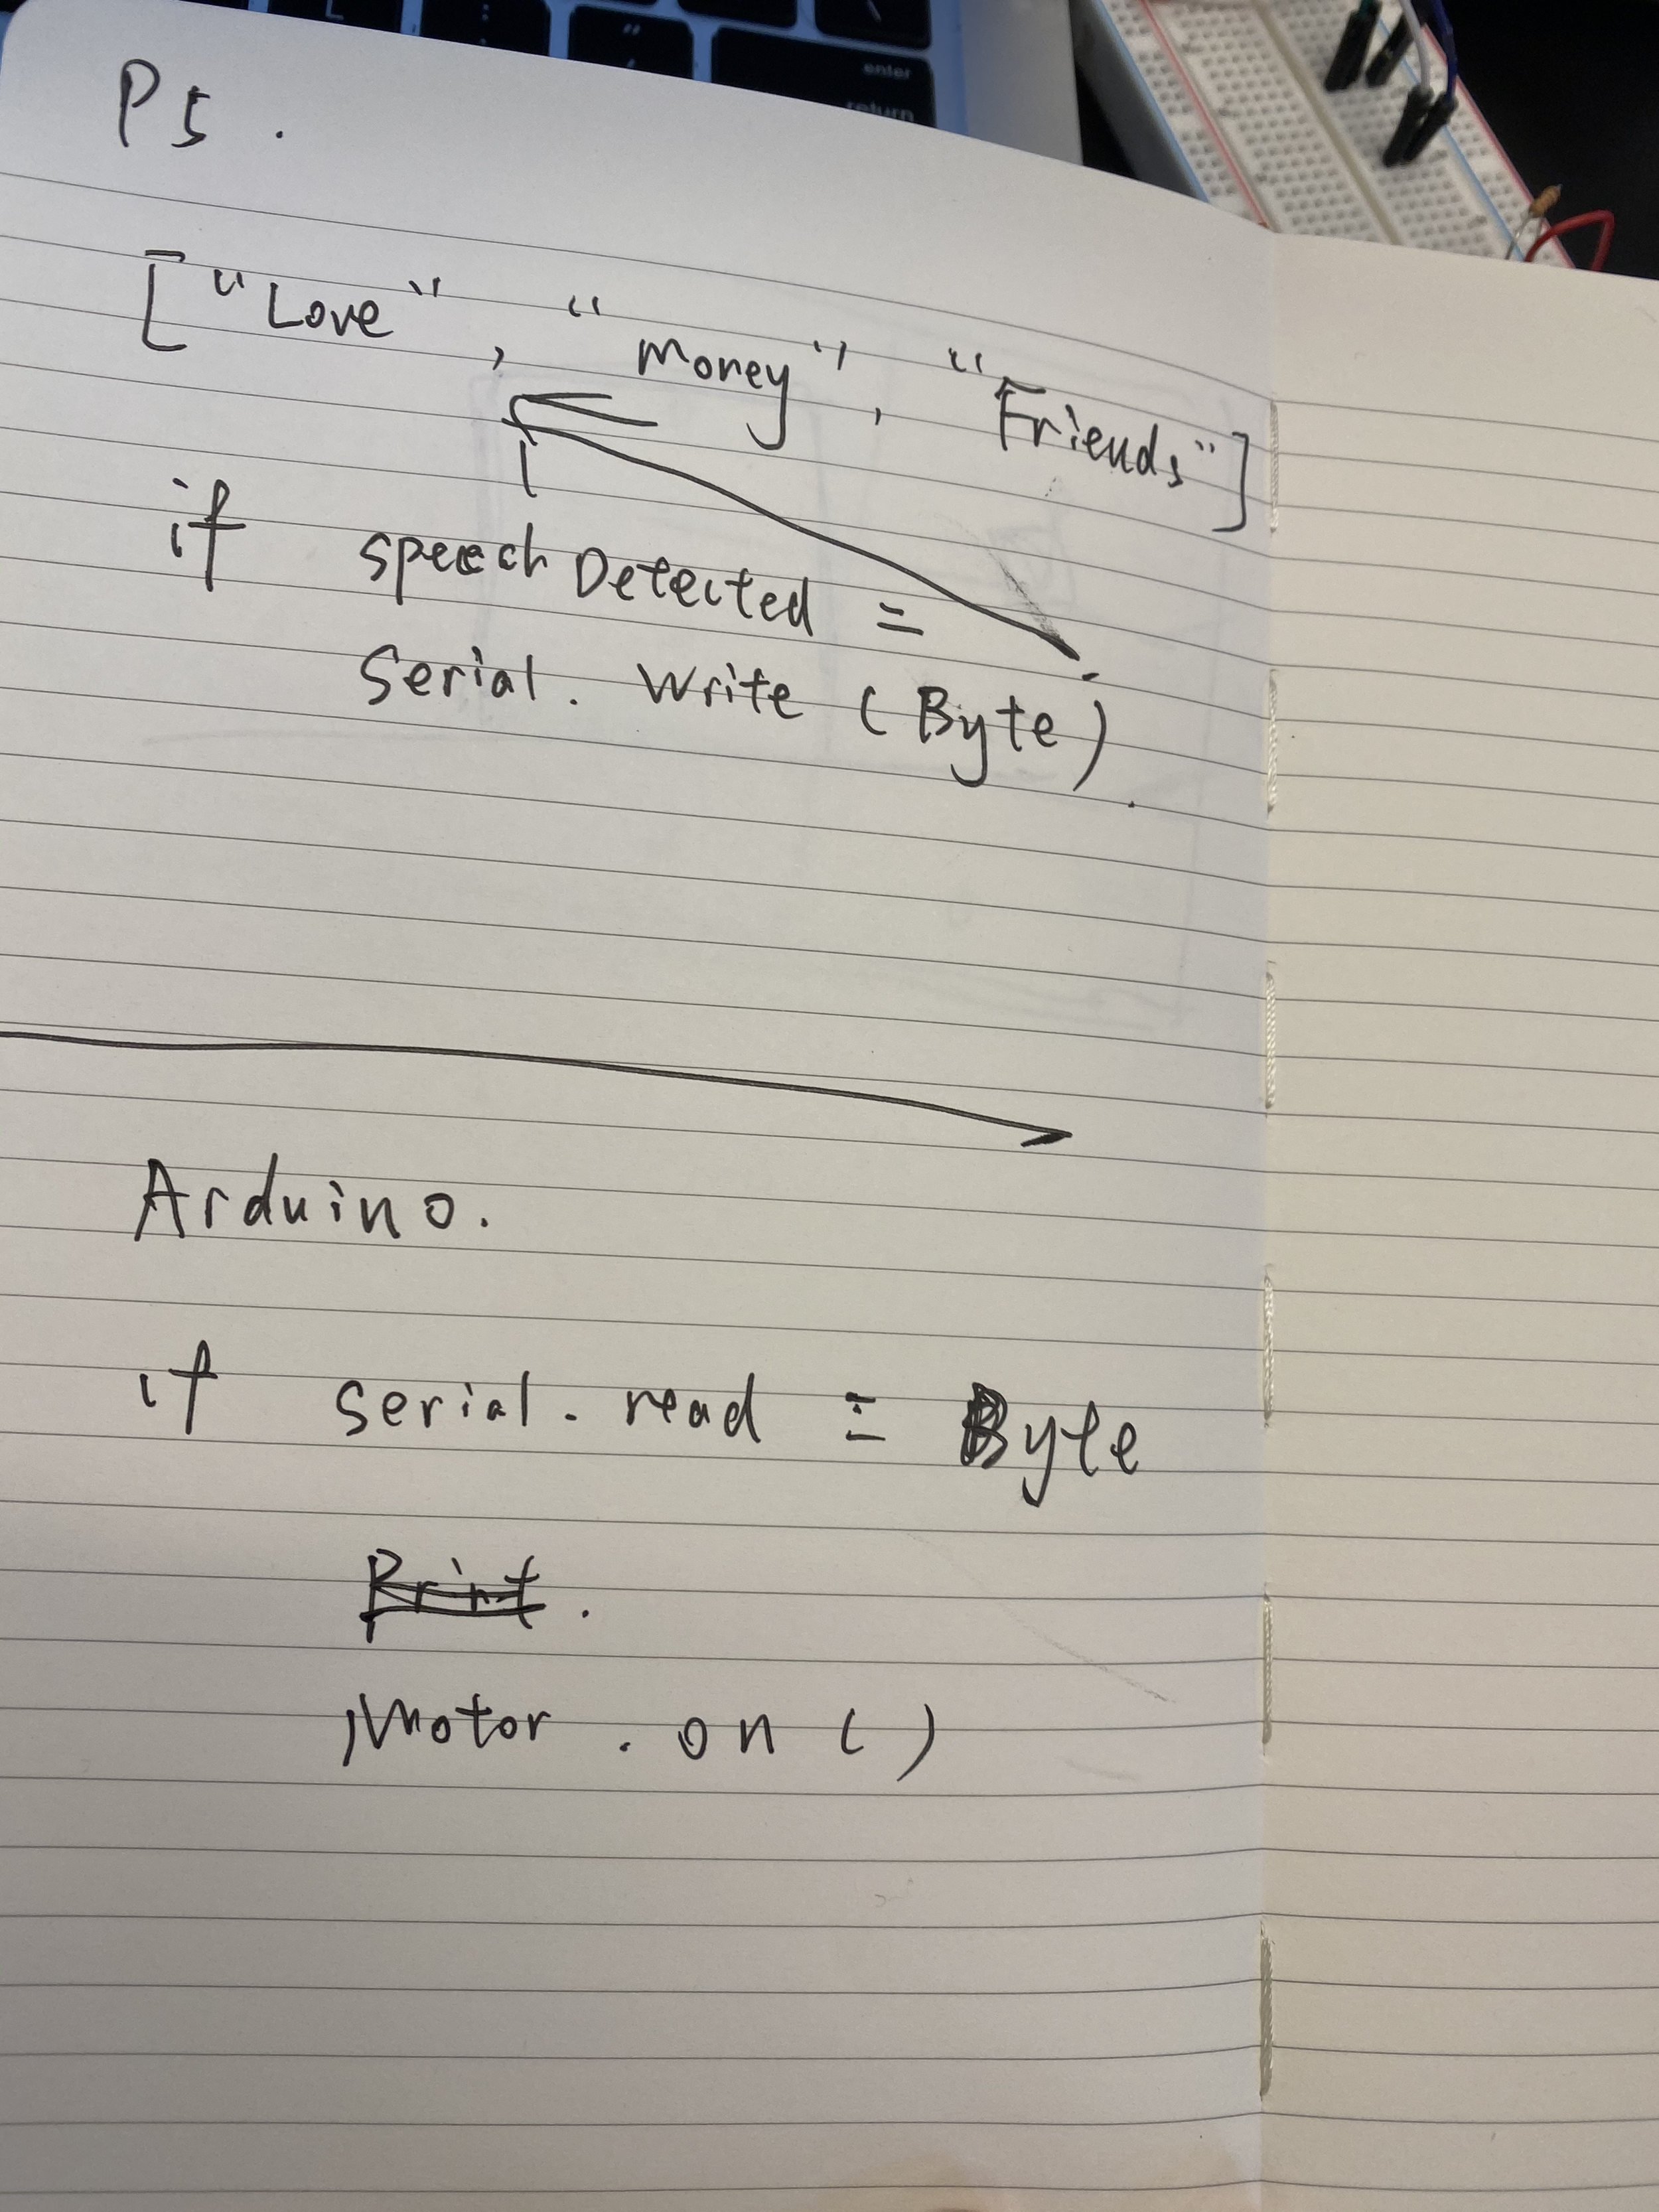 enter
return
P5.
["Love", "Money", "Friends"]
if speech Detected =
Serial. Write (Byte).
Arduino.
if serial. read = Byte
Print.
Motor. on ()